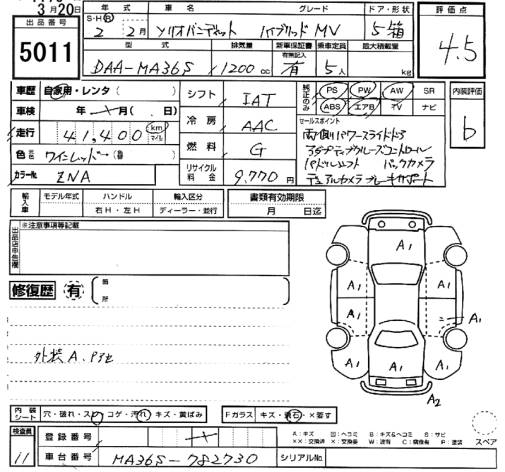 3月20日
出品番号
5011
年式 車名 グレード ドア・形状
S・H・R
2 2月 ソリオバンディット ハイブリッド MV 5箱
評価点
4.5
型式 排気量 新車保証書 乗車定員 最大積載量
有無記入
DAA-MA36S 1200cc 有 5人 kg
車歴 自家用・レンタ( )
車検 年 月( . )日
走行 41,400 km マイル
色 元色 ワインレッド (替 )
カラーNo ZNA
シフト IAT
冷房 AAC
燃料 G
リサイクル料金 9,770円
純正のみ
PS PW AW SR
ABS エアB TV ナビ
内装評価
b
セールスポイント
両側パワースライドドア
アダプティブクルーズコントロール
パドルシフト バックカメラ
デュアルカメラブレーキサポート
輸入車
モデル年式 ハンドル 輸入区分
右H・左H ディーラー・並行
書類有効期限
月 日迄
出品店申告欄
※注意事項等記載
修復歴 有
箇所
外装A.P他
A1
A1 A1
A1 A1
A1 A1 A1
A2
内装シート 穴・破れ・スレ コゲ・汚れ キズ・黄ばみ
Fガラス キズ・飛石・×要す
スペア
検査員
11
登録番号
車台番号 MA36S-782730
シリアルNo.
A：キズ U：ヘコミ B：キズ&ヘコミ S：サビ
××：交換済 X：交換要 W：波有 C：腐食有 P：塗装